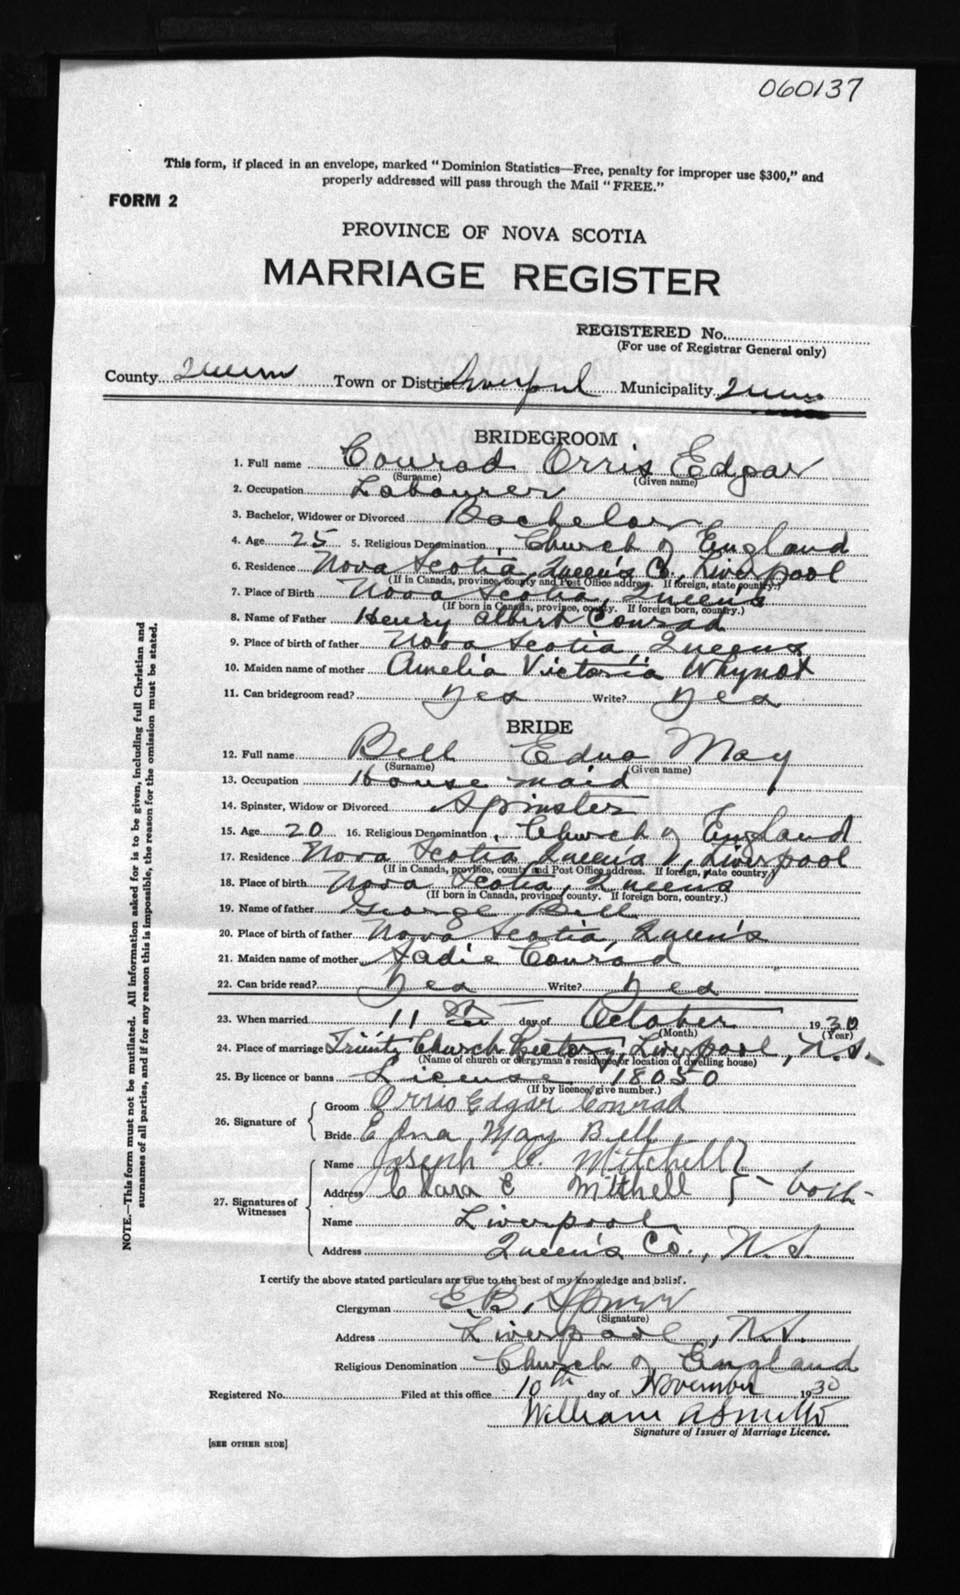 060137
This form, if placed in an envelope, marked "Dominion Statistics—Free, penalty for improper use $300," and
properly addressed will pass through the Mail "FREE."
FORM 2
PROVINCE OF NOVA SCOTIA
MARRIAGE REGISTER
REGISTERED No.
(For use of Registrar General only)
County Queens Town or District Liverpool Municipality Queens
BRIDEGROOM
1. Full name Conrad Orris Edgar
(Surname) (Given name)
2. Occupation Labourer
3. Bachelor, Widower or Divorced Bachelor
4. Age 25 5. Religious Denomination Church of England
6. Residence Nova Scotia, Queen's Co., Liverpool
(If in Canada, province, county and Post Office address. If foreign, state country.)
7. Place of Birth Nova Scotia, Queen's
(If born in Canada, province, county. If foreign born, country.)
8. Name of Father Henry Albert Conrad
9. Place of birth of father Nova Scotia, Queens
10. Maiden name of mother Amelia Victoria Whynot
11. Can bridegroom read? Yes Write? Yes
BRIDE
12. Full name Bell Edna May
(Surname) (Given name)
13. Occupation House maid
14. Spinster, Widow or Divorced Spinster
15. Age 20 16. Religious Denomination Church of England
17. Residence Nova Scotia Queen's Liverpool
(If in Canada, province, county and Post Office address. If foreign, state country)
18. Place of birth Nova Scotia, Queens
(If born in Canada, province county. If foreign born, country.)
19. Name of father George Bell
20. Place of birth of father Nova Scotia, Queen's
21. Maiden name of mother Sadie Conrad
22. Can bride read? Yes Write? Yes
23. When married 11 day of October 1930
(Month) (Year)
24. Place of marriage Trinity Church Rectory, Liverpool, N.S.
(Name of church or clergyman's residence or location of dwelling house)
25. By licence or banns License 18050
(If by licence, give number.)
26. Signature of
Groom Orris Edgar Conrad
Bride Edna May Bell
27. Signatures of Witnesses
Name Joseph C. Mitchell
Address Clara E Mitchell } - both -
Name Liverpool
Address Queen's Co., N.S.
I certify the above stated particulars are true to the best of my knowledge and belief.
Clergyman E.B. Spurr
(Signature)
Address Liverpool, N.S.
Religious Denomination Church of England
Registered No. Filed at this office 10th day of November 1930
William
Signature of Issuer of Marriage Licence.
[SEE OTHER SIDE]
NOTE.—This form must not be mutilated. All information asked for is to be given, including full Christian and
surnames of all parties, and if for any reason this is impossible, the reason for the omission must be stated.